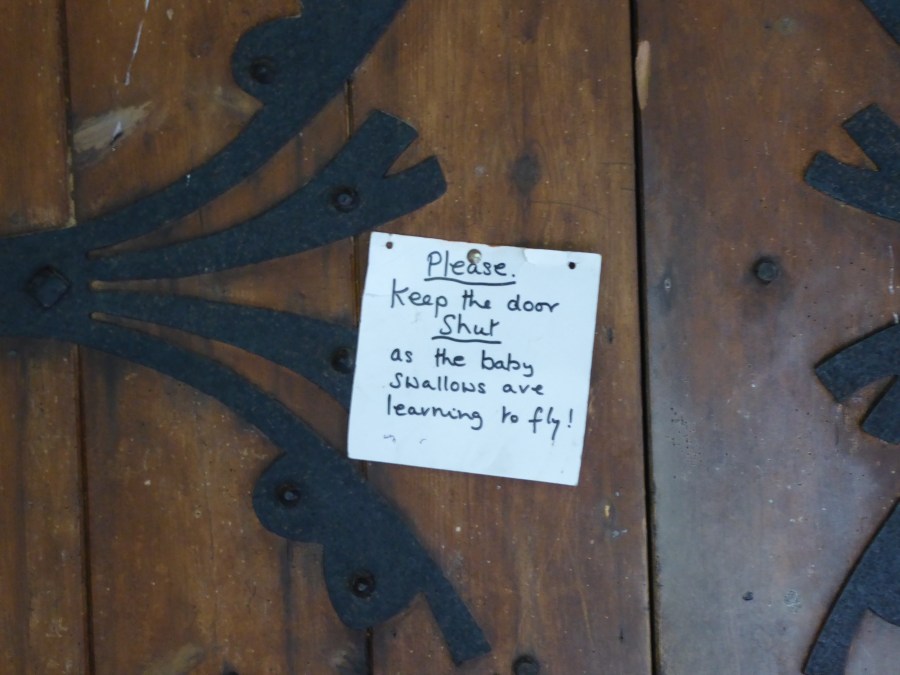 Please.
Keep the door
Shut
as the baby
swallows are
learning to fly!